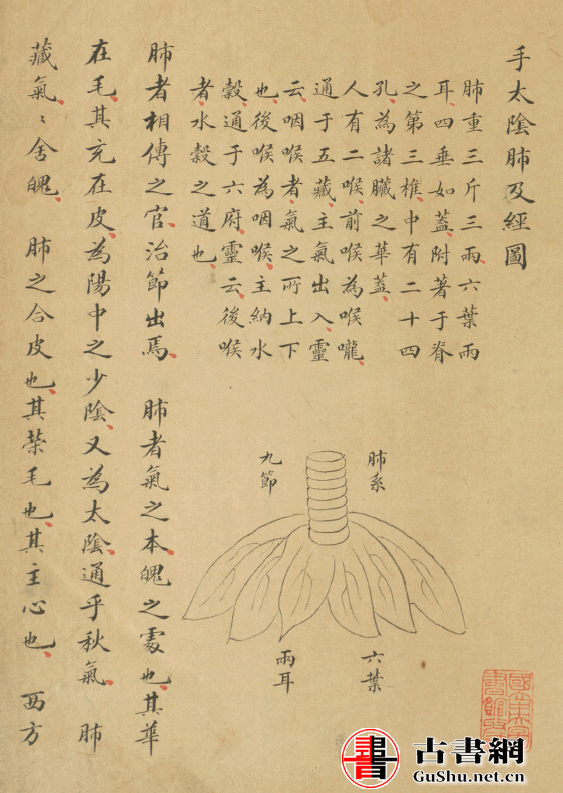 手太陰肺及經圖
肺重三斤三兩六葉兩
耳四垂如蓋附著于脊
之第三椎中有二十四
孔為諸臟之華蓋
人有二喉前喉為喉嚨
通于五藏主氣出入靈
云咽喉者氣之所上下
也後喉為咽喉主納水
穀通于六府靈云後喉
者水穀之道也
肺系
九節
六葉
兩耳
肺者相傳之官治節出焉 肺者氣之本魄之處也其華
在毛其充在皮為陽中之少陰又為太陰通乎秋氣 肺
藏氣〻舍魄 肺之合皮也其榮毛也其主心也 西方
古書網
GuShu.net.cn